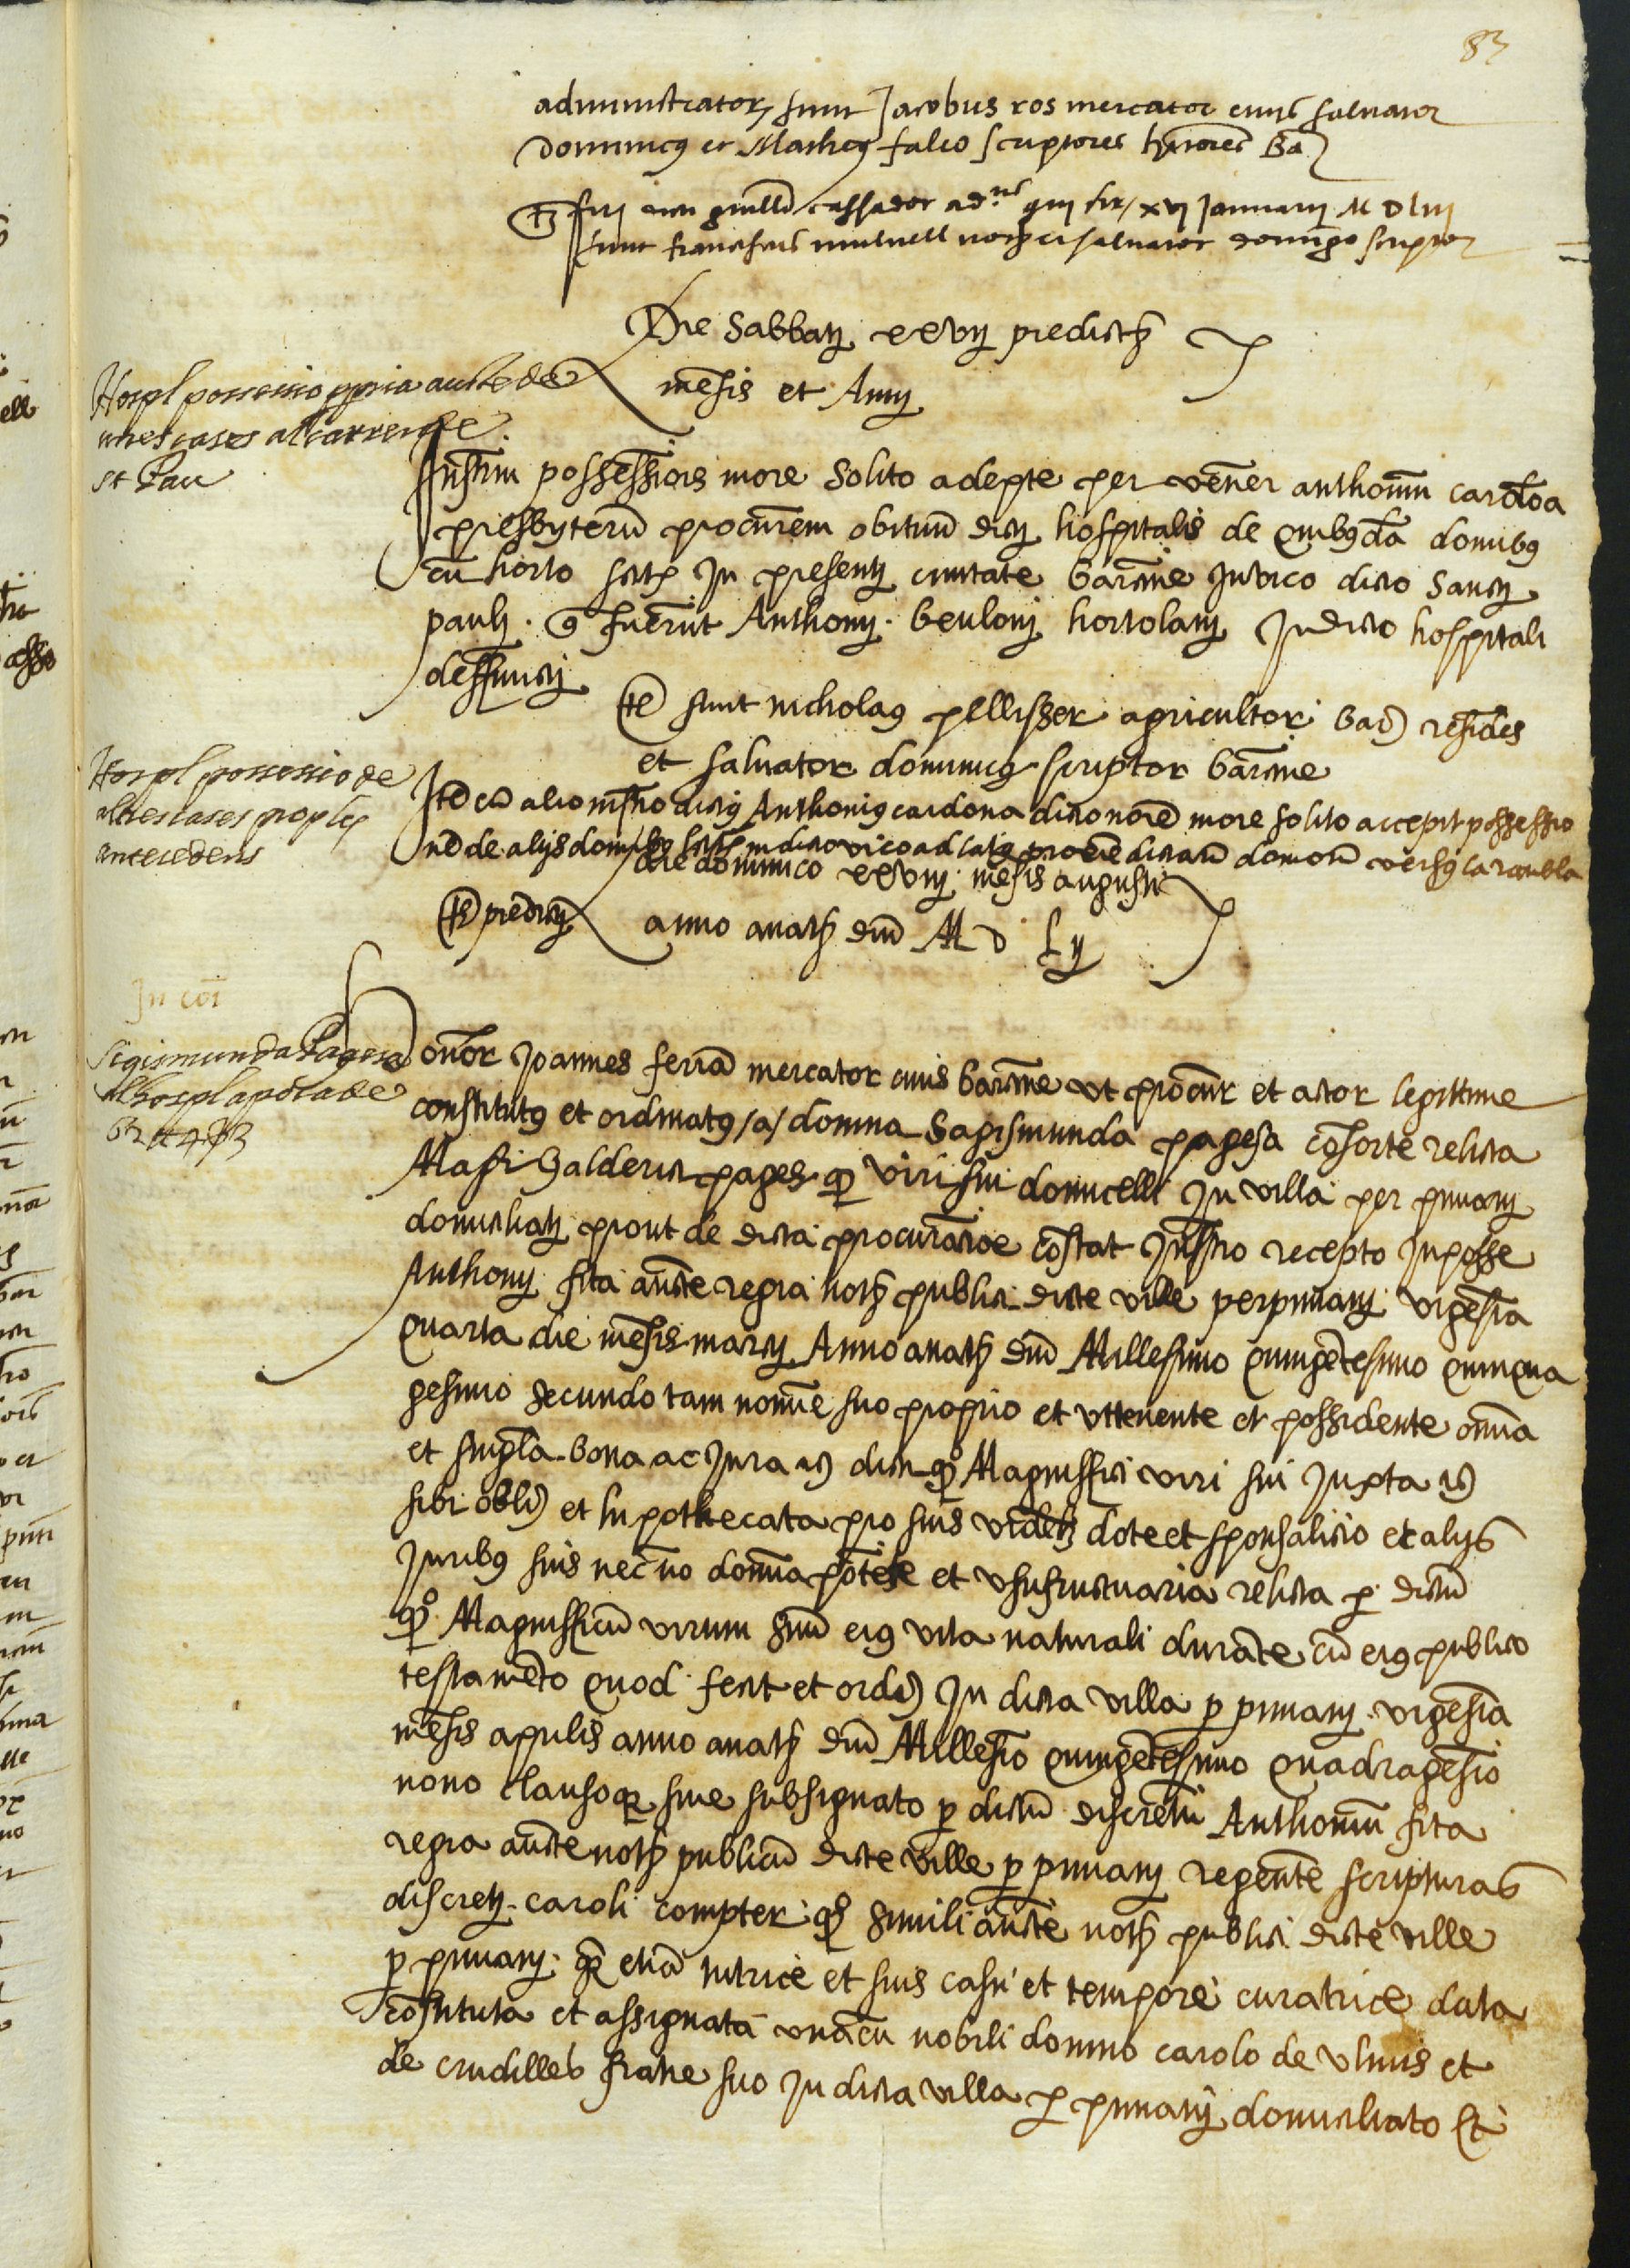 83
administrator, sunt Jacobus ros mercator civis salvator
Dominicus et Matheus falco scriptores habitatores Ba
sunt franciscus mulnell not et salvator domingo scriptor
Die Sabbatj xxvij predictj
mensis et Annj
Hospl possessio ppria aucte de
unes cases al carrer de
st Pau
Instrum possessiois more Solito adepte per vener anthoniu cardoa
presbyteru procurem obituu dictj hospitalis de quibusda domibus
cu horto sitis In presentj civitate barcine In vico dicto Sanctj
paulj. q fuerut Anthonij beulonj hortolanj In dicto hospitali
deffunctj
Ts sunt nicholaus pellisser agricultor bar resides
et salvator dominicus scriptor barcine
Hospl possessio de
altres cases prop les
antecedens
Ite cu alio instro dictus Anthonius cardona dicto noie more solito accepit possessio
ne de alijs domibus sitis in dicto vico ad latus dictaru domoru versus la rambla
die dominico xxviij mesis augusti
Ts predictj anno a natj dni M D Lij
In coi
Sigismunda Pagesa
al hospl apoca de
62 ll 4 s 3
honor Joannes ferra mercator civis barcine ut procur et actor legittime
constitutus et ordinatus /a/ domina Sagismunda pagesa cosorte relicta
Mafi Galderich pages qo viri sui domicelli In villa perpinianj
domiciliatj prout de dicta procuratioe costat Instro recepto In posse
Anthonij fita aucte regia notj publici dicte ville perpinianj vigesia
quarta die mesis marcij Anno a natj dni Millesimo quingetesimo quinqua
gesimo secundo tam nomie suo proprio et ut tenente et possidente omia
et singla bona ac Jura dicti qo Magniffici viri sui Juxta
sibi obli et hipothecata pro suis videlz dote et sponsalicio et alijs
Juribus suis nec no domia potete et usufructuaria relicta p dictu
qo Magnifficu virum suu eius vita naturali durate cu eius publico
testameto quod fecit et ordi In dicta villa p pinianj vigesia
mesis aprilis anno a natj dni Millesio quingetesimo quadragesio
nono clausoqz sive subsignato p dictu discretu Anthoniu fita
regia aucte notj publicu dicte ville p pinianj regente scripturas
discretj caroli compter qo simili aucte notj publici dicte ville
p pinianj qz etia tutrice et suis casu et tempore curatrice data
costituta et assignata unacu nobili domino carolo de ulmis et
de crudilles fratre suo In dicta villa p pinianj domiciliato Et